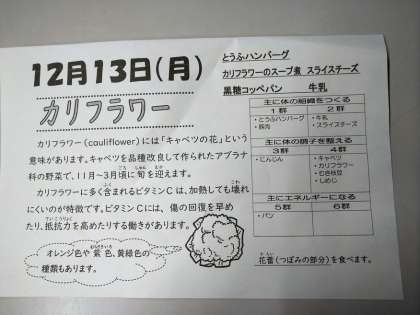 12月13日(月)
カリフラワー
カリフラワー(cauliflower)には「キャベツの花」という
意味があります。キャベツを品種改良して作られたアブラナ
科の野菜で、11～3月頃に旬を迎えます。
カリフラワーに多く含まれるビタミンCは、加熱しても壊れ
にくいのが特徴です。ビタミンCには、傷の回復を早め
たり、抵抗力を高めたりする働きがあります。
オレンジ色や紫色、黄緑色の
種類もあります。
とうふハンバーグ
カリフラワーのスープ煮 スライスチーズ
黒糖コッペパン 牛乳
主に体の組織をつくる
1群 2群
・とうふハンバーグ ・牛乳
・豚肉 ・スライスチーズ
主に体の調子を整える
3群 4群
・にんじん ・キャベツ
・カリフラワー
・むき枝豆
・しめじ
主にエネルギーになる
5群 6群
・パン
花蕾(つぼみの部分)を食べます。